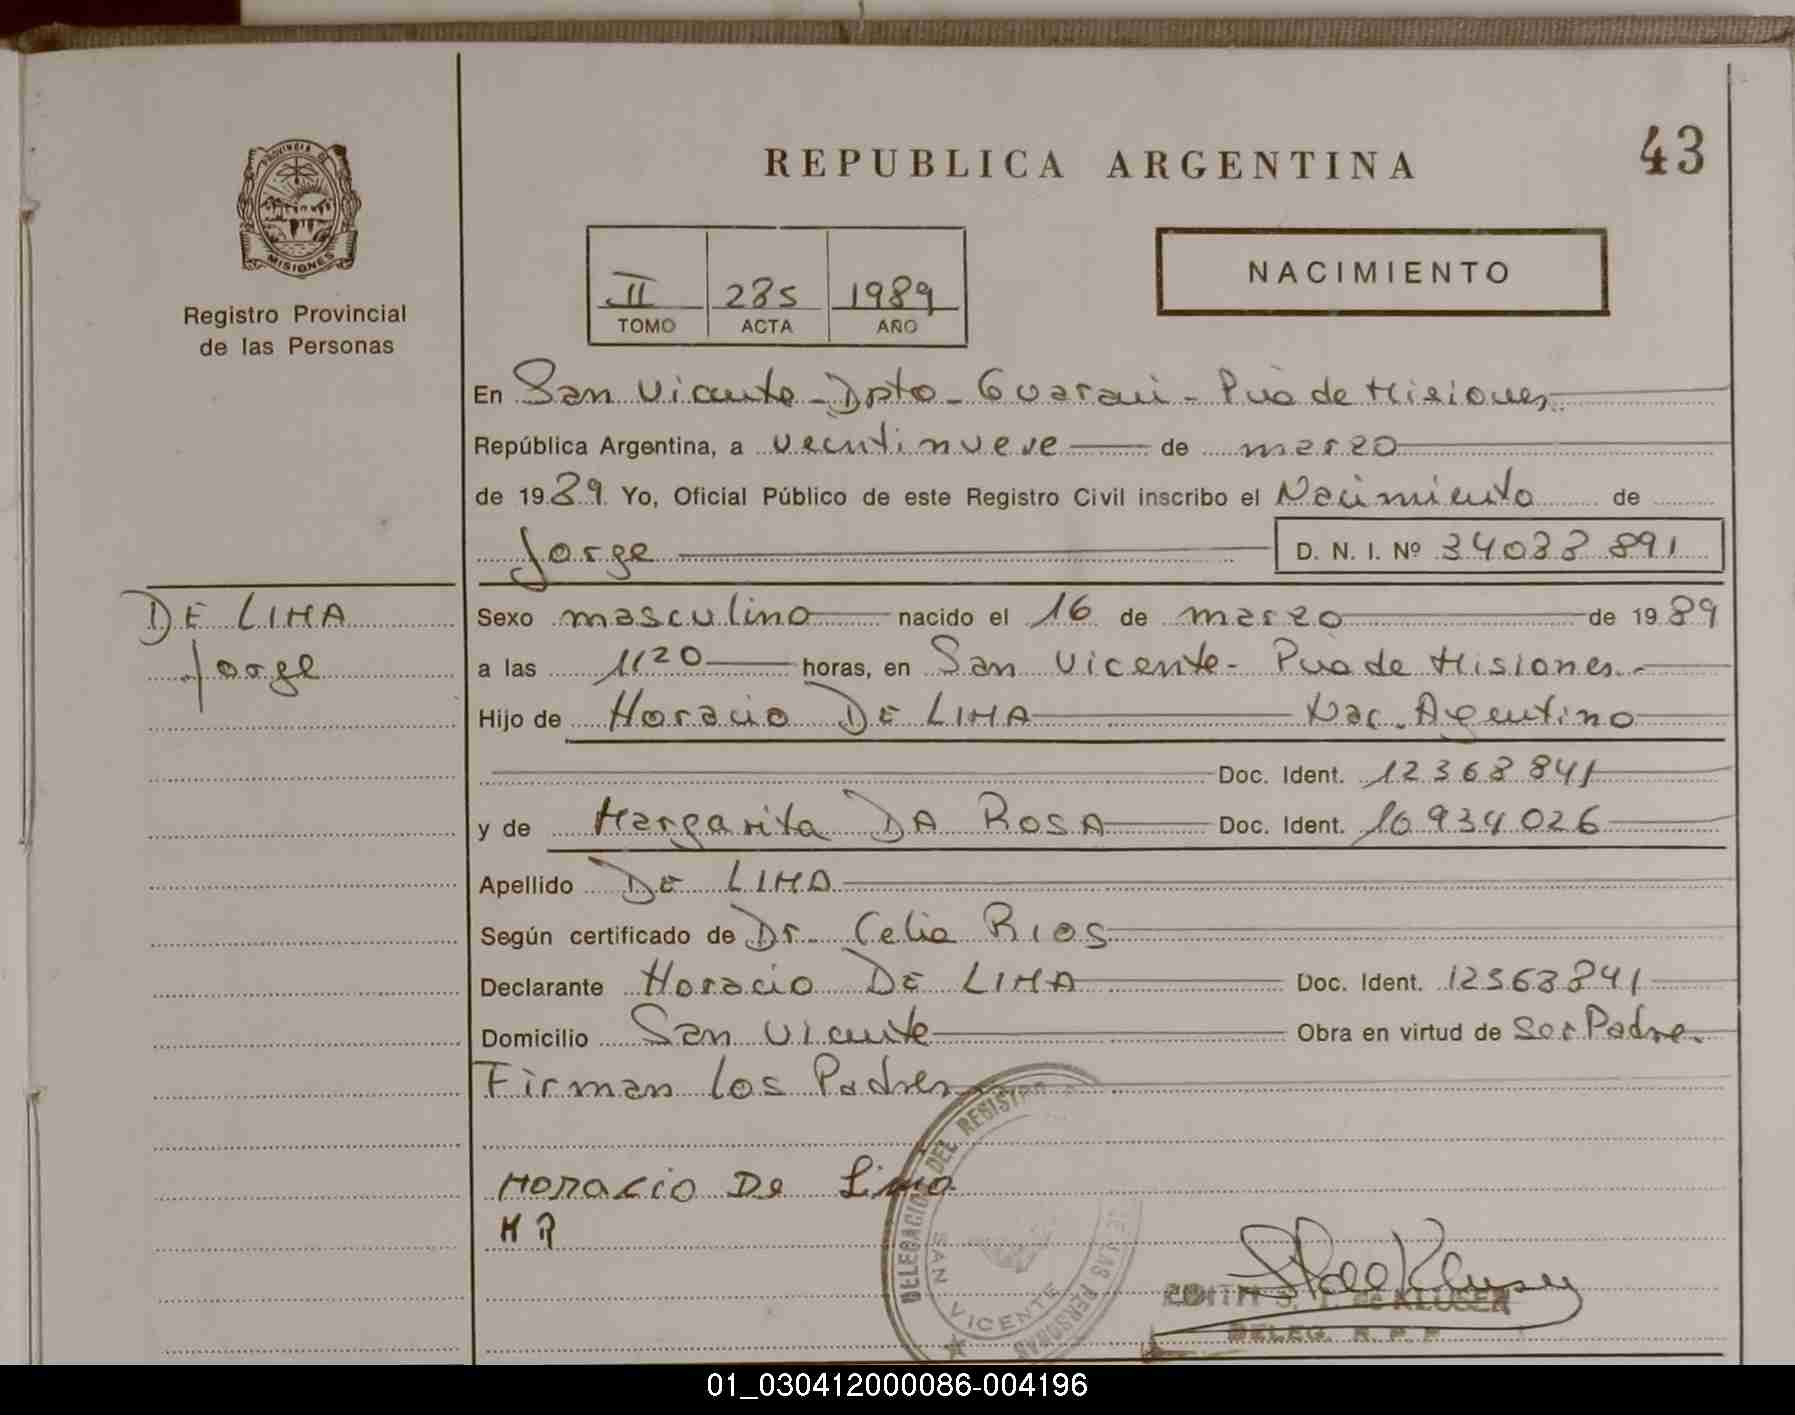 43
REPUBLICA ARGENTINA
PROVINCIA DE
MISIONES
Registro Provincial
de las Personas
NACIMIENTO
II 285 1989
TOMO ACTA AÑO
En San Vicente - Dpto - Guarani - Pcia de Misiones
República Argentina, a veintinueve de marzo
de 1989. Yo, Oficial Público de este Registro Civil inscribo el Nacimiento de
Jorge D. N. I. Nº 34038 891
DE LIMA
Jorge
Sexo masculino nacido el 16 de marzo de 1989
a las 1120 horas, en San Vicente - Pcia de Misiones.-
Hijo de Horacio DE LIMA Nac. Argentino
Doc. Ident. 12368841
y de Margarita DA ROSA Doc. Ident. 16934026
Apellido DE LIMA
Según certificado de Dr. Celia RIOS
Declarante Horacio DE LIMA Doc. Ident. 12368841
Domicilio San Vicente Obra en virtud de Ser Padre.
Firman los Padres
HORACIO De Lima
M R
DELEGACION DEL REGISTRO DE LAS PERSONAS
SAN VICENTE
EDITH S. T. de KLUSER
DELEG. R. P. P.
01_030412000086-004196